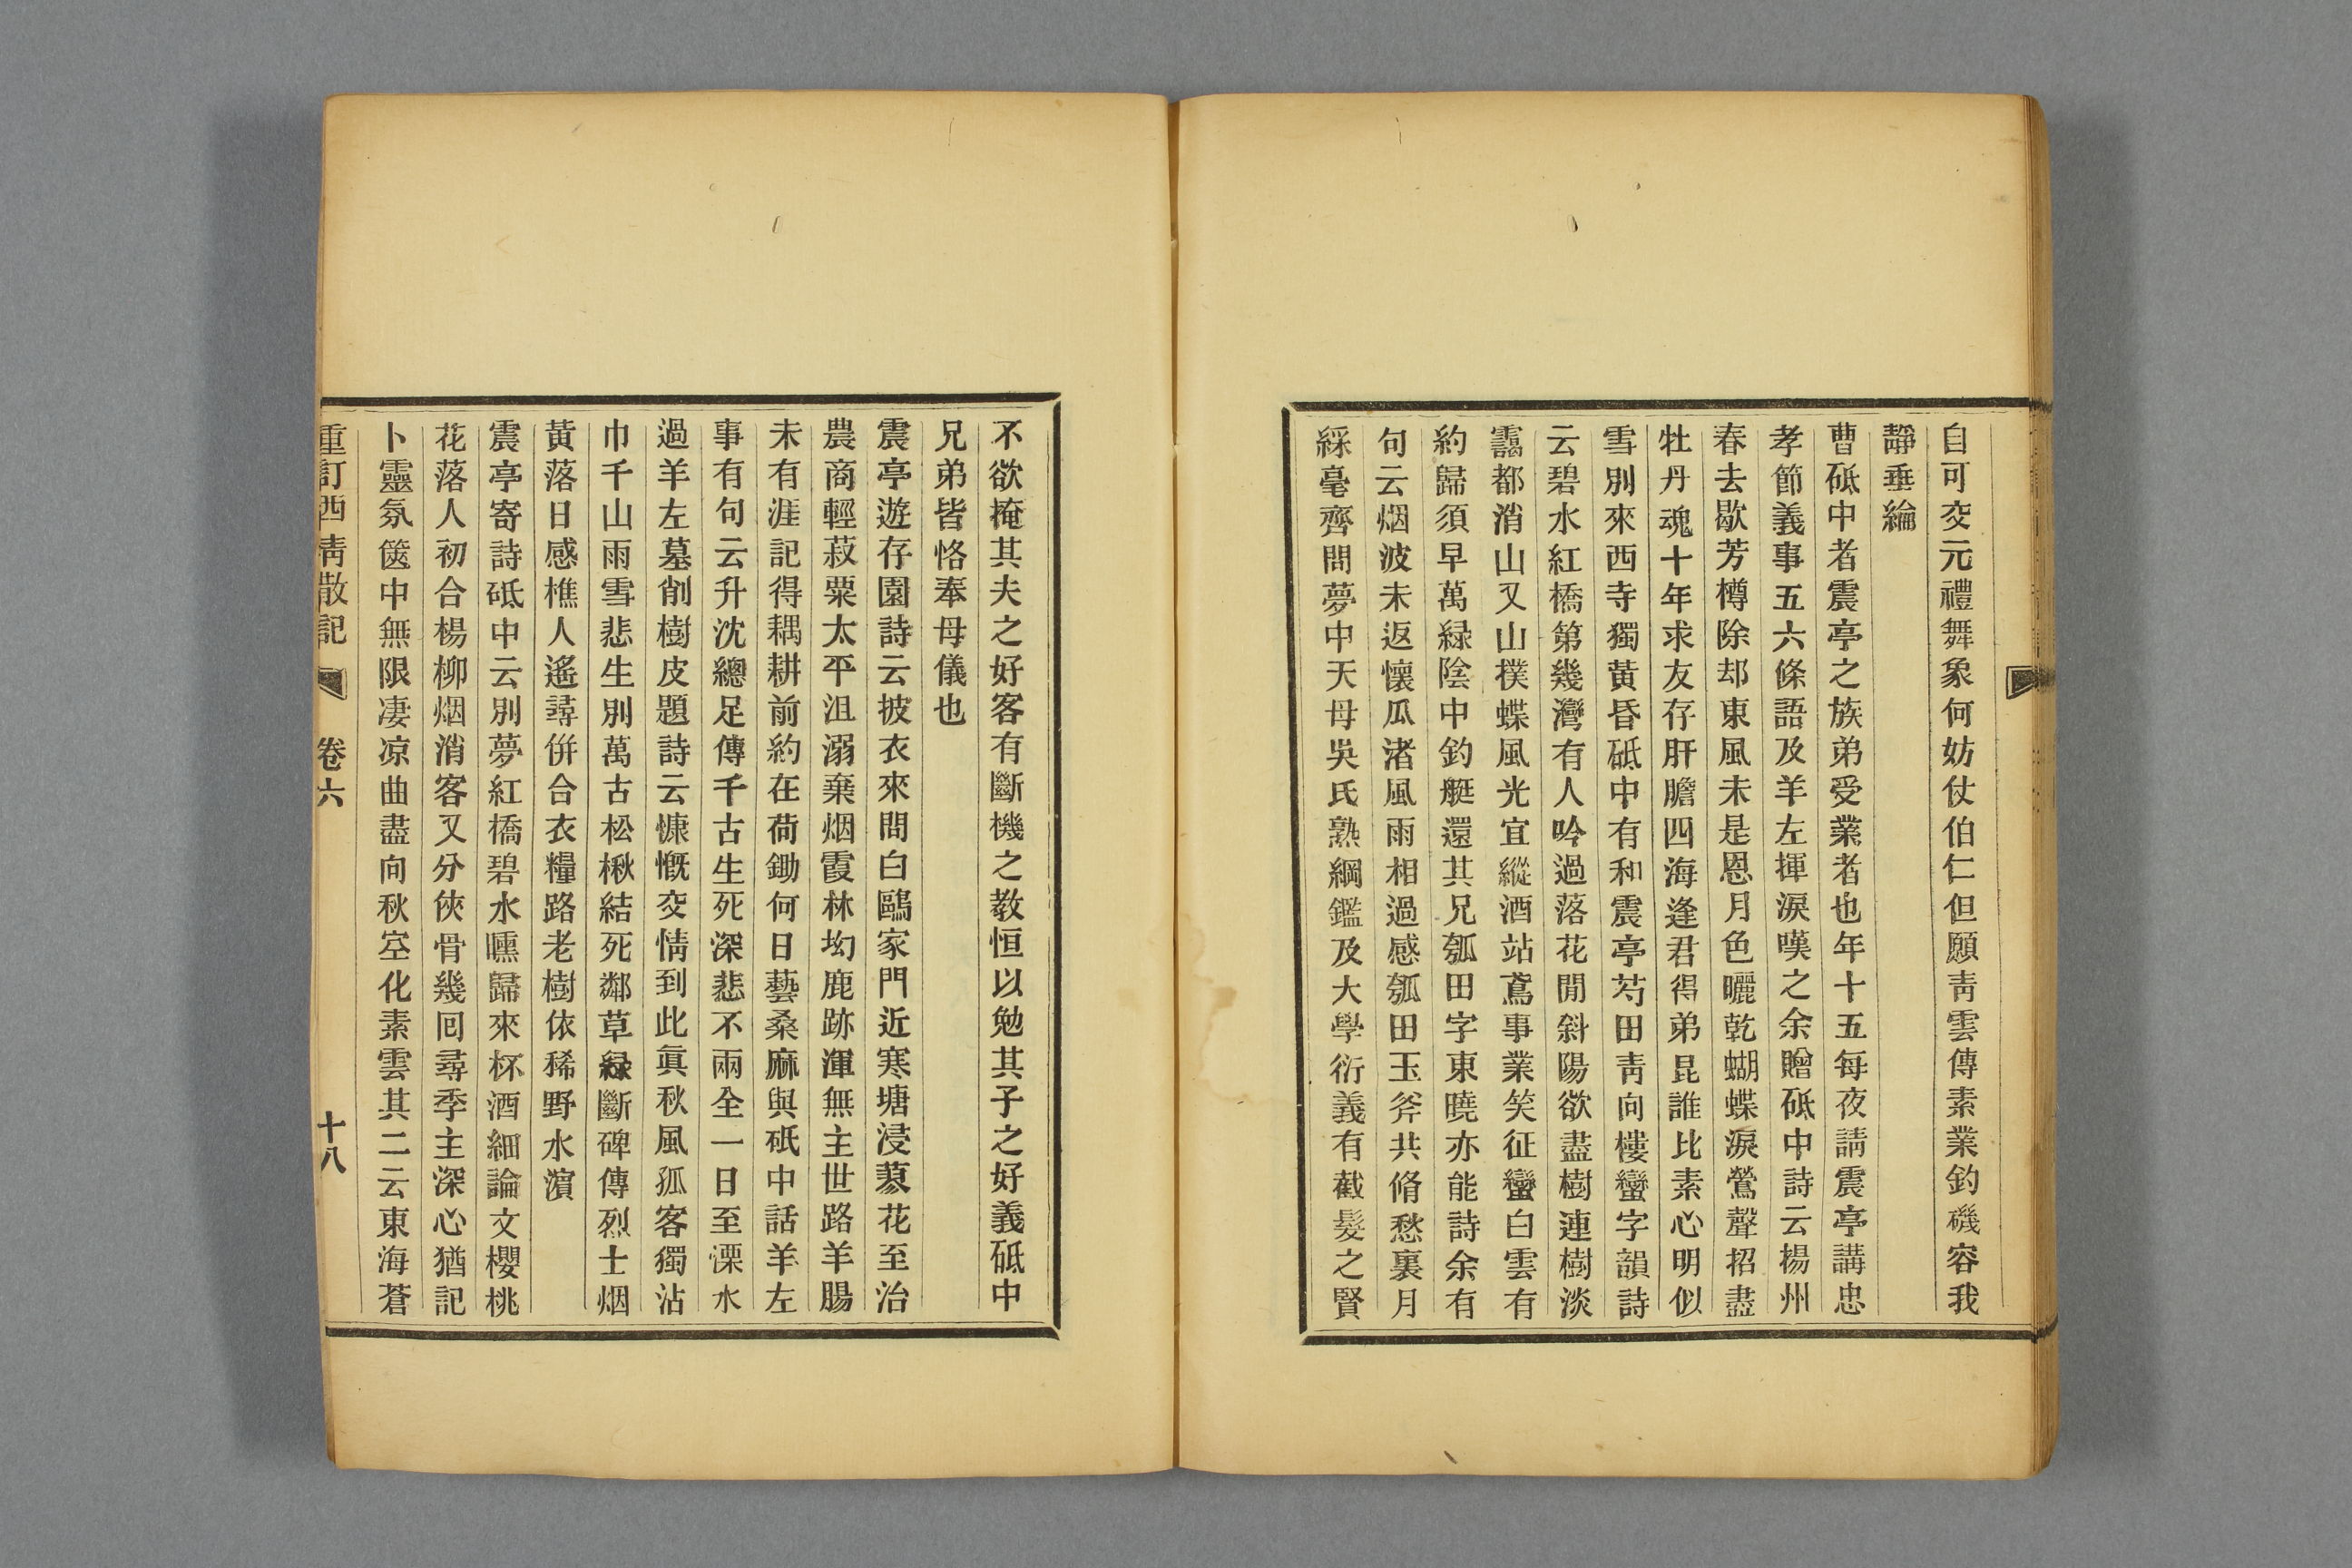 自可交元禮舞象何妨仗伯仁但願靑雲傳素業釣磯容我
靜垂綸
曹砥中者震亭之族弟受業者也年十五每夜請震亭講忠
孝節義事五六條語及羊左揮淚嘆之余贈砥中詩云楊州
春去歇芳樽除却東風未是恩月色曬乾蝴蝶淚鶯聲招盡
牡丹魂十年求友存肝膽四海逢君得弟昆誰比素心明似
雪別來西寺獨黃昏砥中有和震亭芍田靑向樓蠻字韻詩
云碧水紅橋第幾灣有人吟過落花閒斜陽欲盡樹連樹淡
靄都消山又山撲蝶風光宜縱酒站鳶事業笑征蠻白雲有
約歸須早萬緑陰中釣艇還其兄瓠田字東曉亦能詩余有
句云烟波未返懷瓜渚風雨相過感瓠田玉斧共脩愁裏月
綵毫齊問夢中天母吳氏熟綱鑑及大學衍義有截髮之賢
不欲掩其夫之好客有斷機之教恒以勉其子之好義砥中
兄弟皆恪奉母儀也
震亭遊存園詩云披衣來問白鷗家門近寒塘浸蓼花至治
農商輕菽粟太平沮溺棄烟霞林坳鹿跡渾無主世路羊腸
未有涯記得耦耕前約在荷鋤何日藝桑麻與砥中話羊左
事有句云升沈總足傳千古生死深悲不兩全一日至溧水
過羊左墓削樹皮題詩云慷慨交情到此眞秋風孤客獨沾
巾千山雨雪悲生別萬古松楸結死鄰草緑斷碑傳烈士烟
黃落日感樵人遙尋倂合衣糧路老樹依稀野水濱
震亭寄詩砥中云別夢紅橋碧水曛歸來杯酒細論文櫻桃
花落人初合楊柳烟消客又分俠骨幾回尋季主深心猶記
卜靈氛篋中無限凄凉曲盡向秋空化素雲其二云東海蒼
重訂西靑散記
卷六
十八